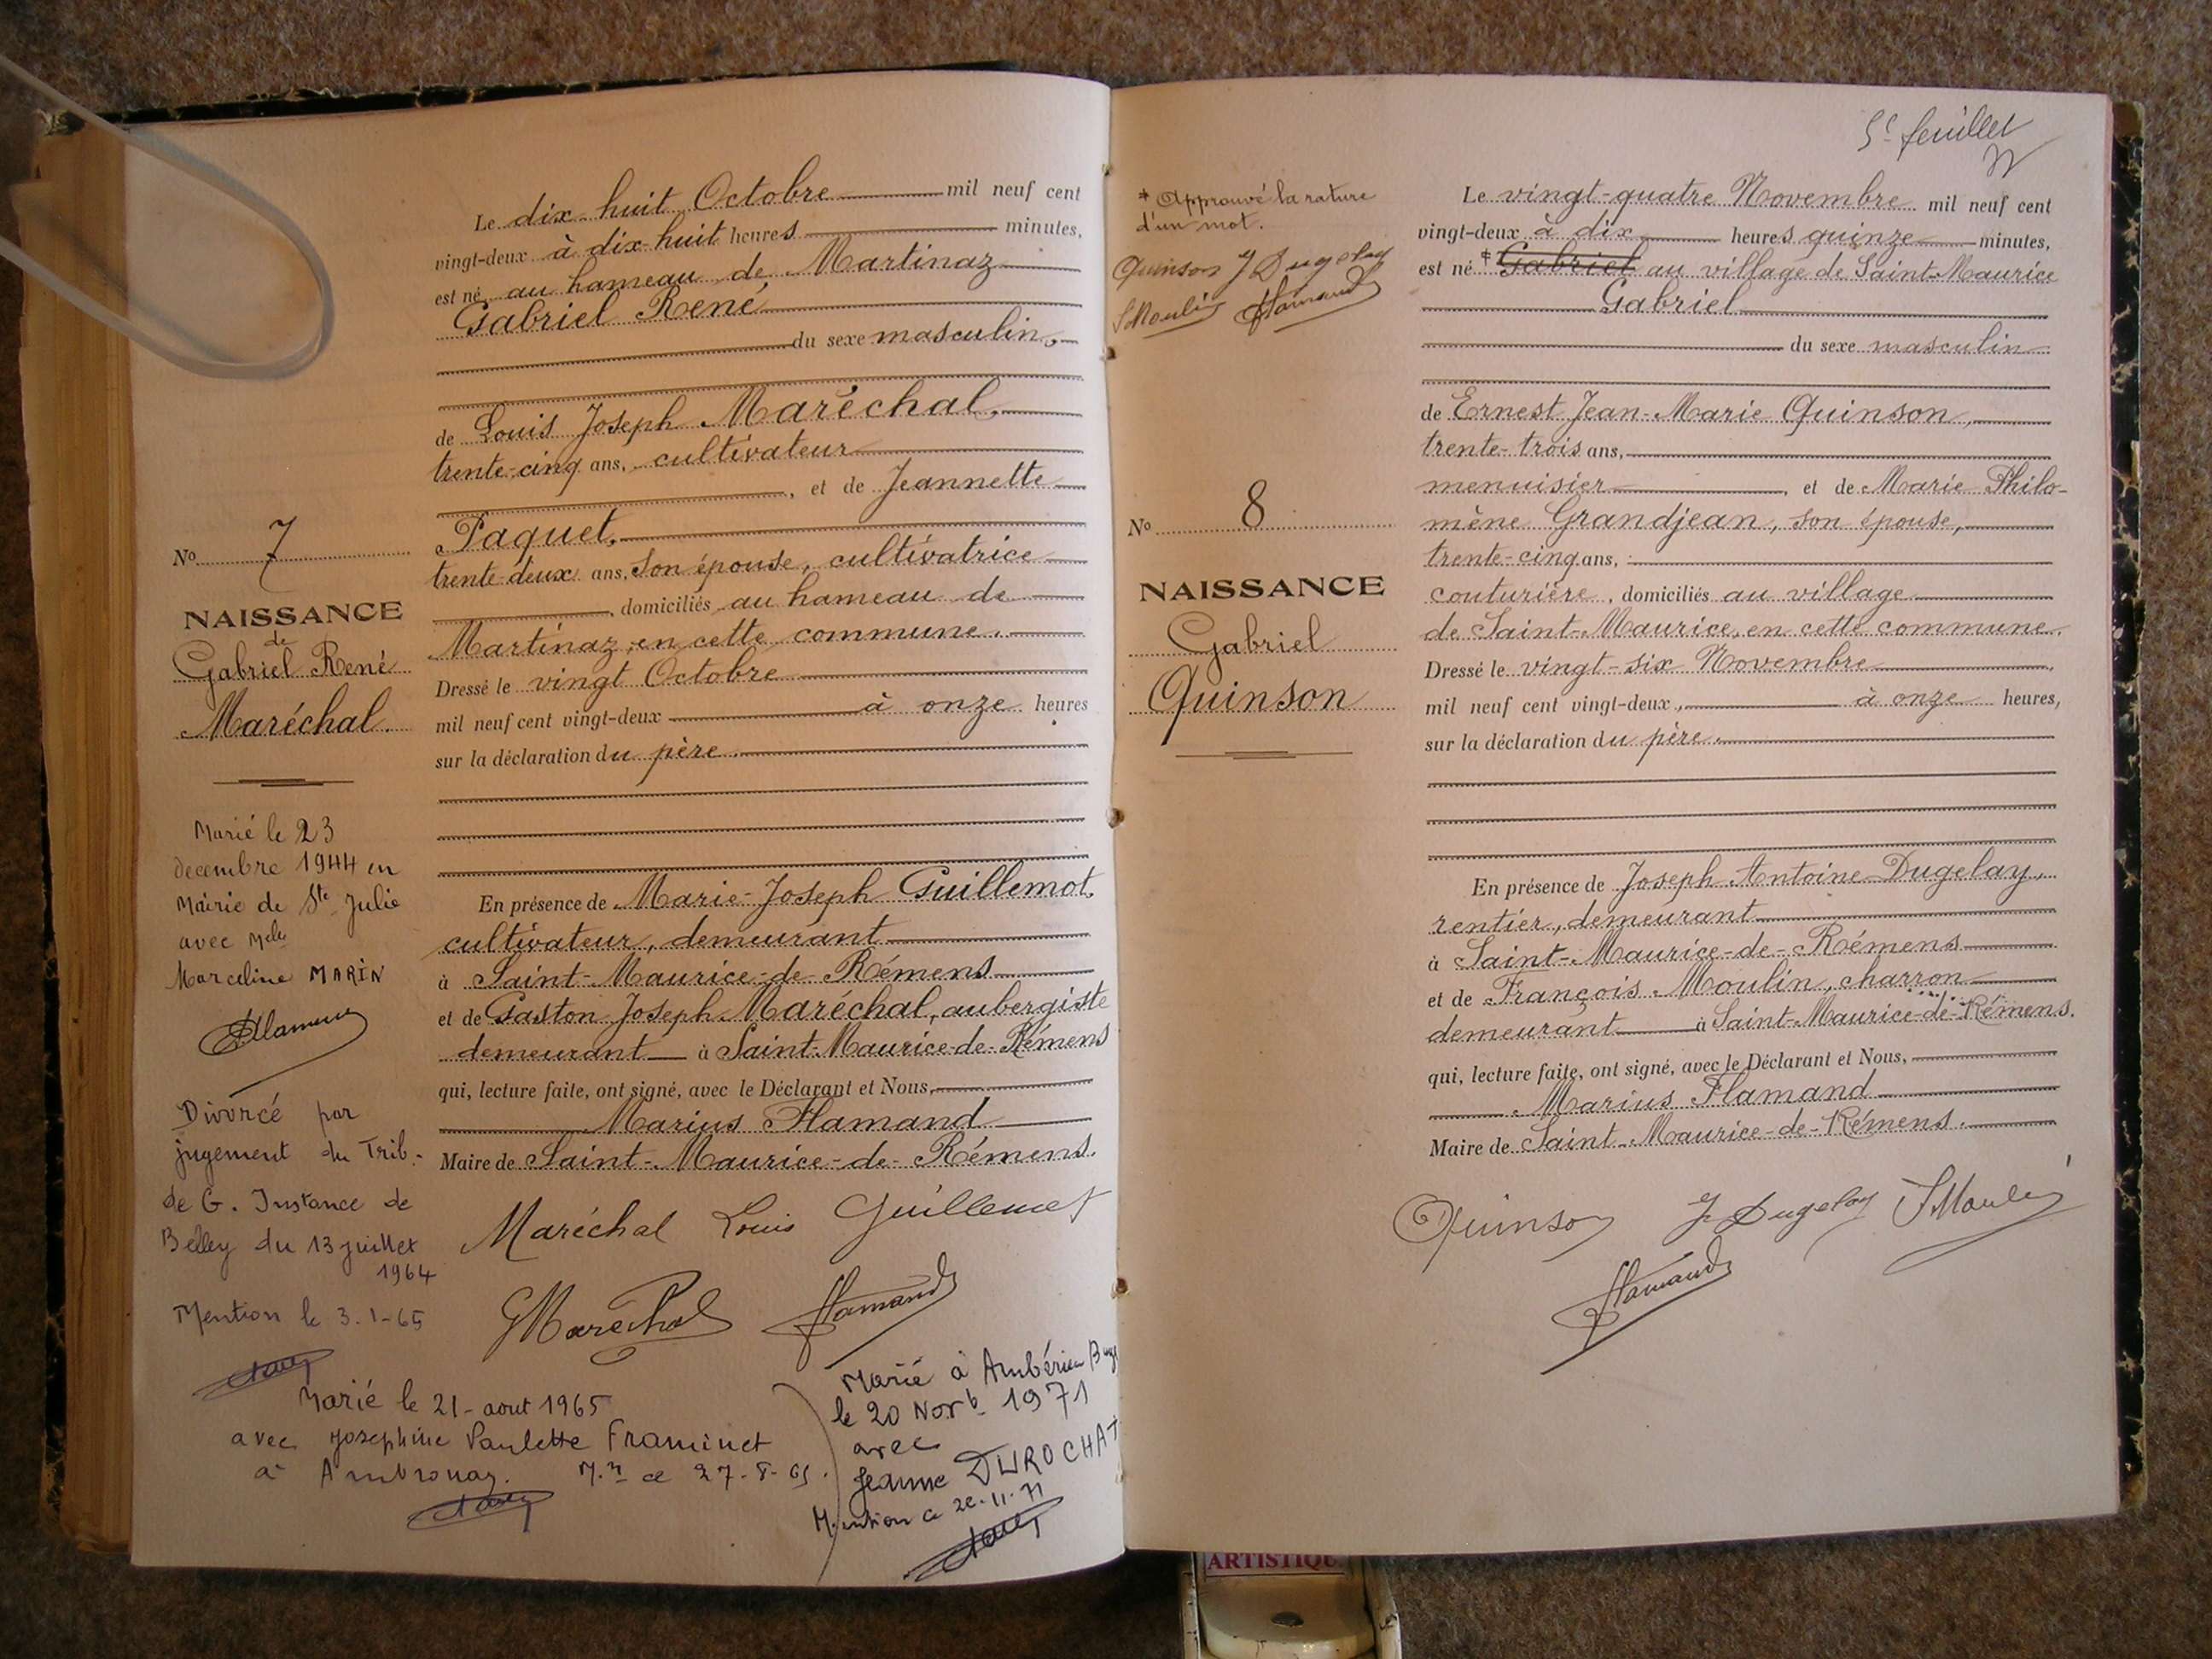 Le dix-huit Octobre mil neuf cent
vingt-deux à dix-huit heures minutes,
est né au hameau de Martinaz
Gabriel René
du sexe masculin,
de Louis Joseph Maréchal,
trente-cinq ans, cultivateur
, et de Jeannette
Paquet,
trente-deux ans, son épouse, cultivatrice
, domiciliés au hameau de
Martinaz, en cette commune.
Dressé le vingt Octobre
mil neuf cent vingt-deux à onze heures
sur la déclaration du père.
En présence de Marie-Joseph Guillemot,
cultivateur, demeurant
à Saint-Maurice-de-Rémens
et de Gaston Joseph Maréchal, aubergiste
demeurant à Saint-Maurice-de-Rémens
qui, lecture faite, ont signé, avec le Déclarant et Nous,
Marius Flamand
Maire de Saint-Maurice-de-Rémens.
Maréchal Louis Guillemot
GMaréchal Flamand
No 7
NAISSANCE
de
Gabriel René
Maréchal.
Marié le 23
decembre 1944 en
Mairie de Ste Julie
avec Melle
Marceline MARIN
Divorcé par
jugement du Trib.
de G. Instance de
Belley du 13 juillet
1964
Mention le 3.1-65
Marié le 21-aout 1965
avec Josephine Paulette Framinet
à Ambronay. Mn ce 27-8-65.
Marié à Ambérieu Bugey
le 20 Novb 1971
avec
Jeanne DUROCHAT
Mention ce 22-11-71
5e feuillet
* Approuvé la rature
d'un mot.
Quinson J Dugelay
F Moulin Flamand
No 8
NAISSANCE
Gabriel
Quinson
Le vingt-quatre Novembre mil neuf cent
vingt-deux à dix heures quinze minutes,
est né * Gabriel au village de Saint-Maurice
Gabriel
du sexe masculin
de Ernest Jean-Marie Quinson,
trente-trois ans,
menuisier , et de Marie Philo-
mène Grandjean, son épouse,
trente-cinq ans,
couturière, domiciliés au village
de Saint-Maurice, en cette commune.
Dressé le vingt-six Novembre
mil neuf cent vingt-deux, à onze heures,
sur la déclaration du père.
En présence de Joseph Antoine Dugelay,
rentier, demeurant
à Saint-Maurice-de-Rémens
et de François Moulin, charron
demeurant à Saint-Maurice-de-Rémens.
qui, lecture faite, ont signé, avec le Déclarant et Nous,
Marius Flamand
Maire de Saint-Maurice-de-Rémens.
Quinson J Dugelay F Moulin
Flamand
ARTISTIQUE